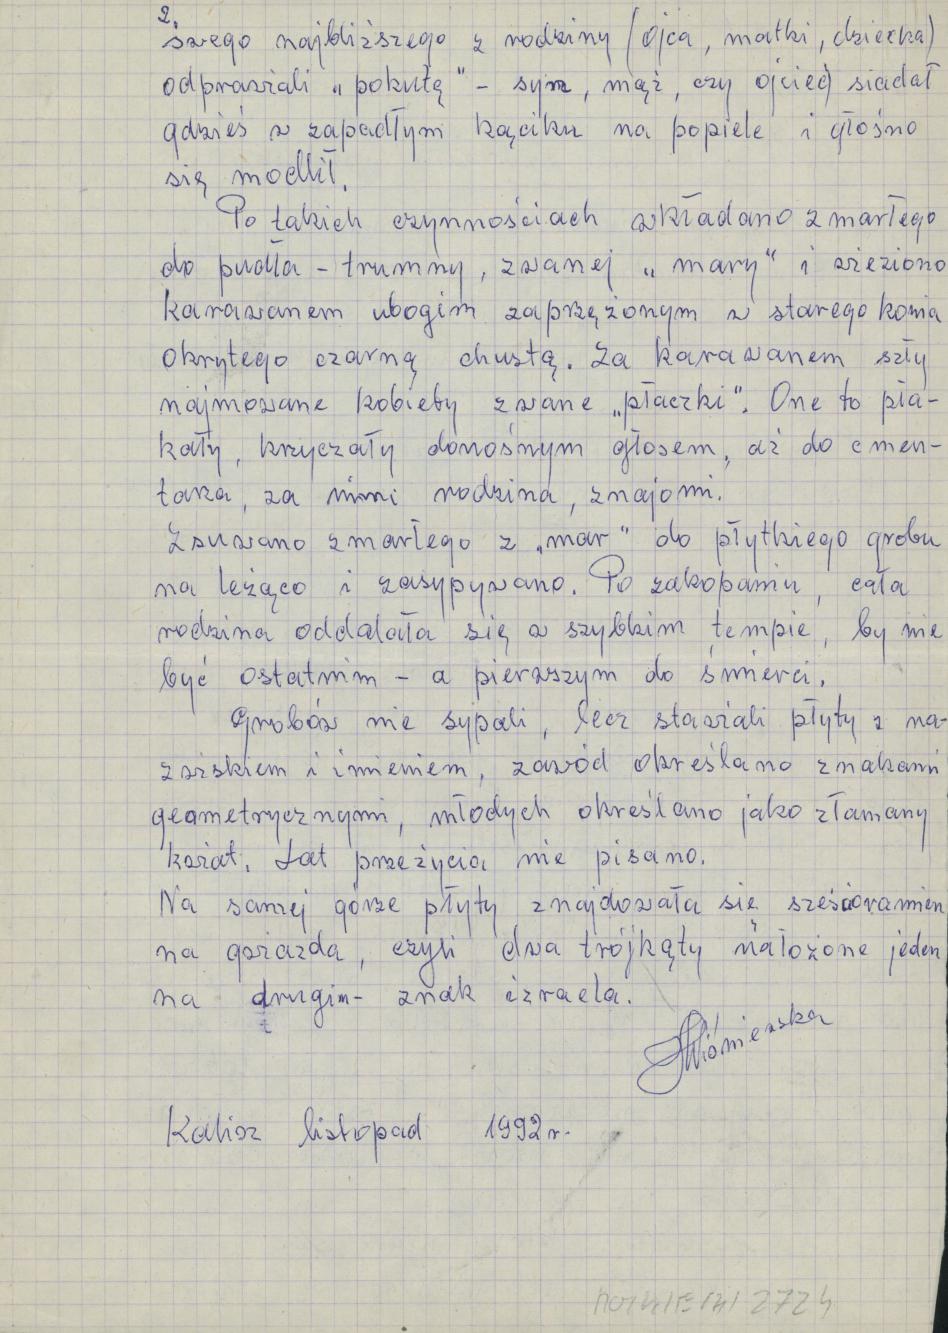 2.
swego najbliższego z rodziny (ojca, matki, dziecka)
odprawiali „pokutę" - syn, mąż, czy ojciec) siadał
gdzieś w zapadłym kąciku na popiele i głośno
się modlił.
Po takich czynnościach wkładano zmarłego
do pudła - trumny, zwanej „mary" i wieziono
karawanem ubogim zaprzężonym w starego konia
okrytego czarną chustą. Za karawanem szły
najmowane kobiety zwane „płaczki". One to pła-
kały, krzyczały donośnym głosem, aż do cmen-
tarza, za nimi rodzina, znajomi.
Zsuwano zmarłego z „mar" do płytkiego grobu
na leżąco i zasypywano. Po zakopaniu, cała
rodzina oddalała się w szybkim tempie, by nie
być ostatnim - a pierwszym do śmierci.
Grobów nie sypali, lecz stawiali płyty z na-
zwiskiem i imieniem, zawód określano znakami
geometrycznymi, młodych określano jako złamany
kwiat. Lat przeżycia nie pisano.
Na samej górze płyty znajdowała się sześcioramien
na gwiazda, czyli dwa trójkąty nałożone jeden
na drugim - znak izraela.
Wiśniewska
Kalisz listopad 1992 r.
2724